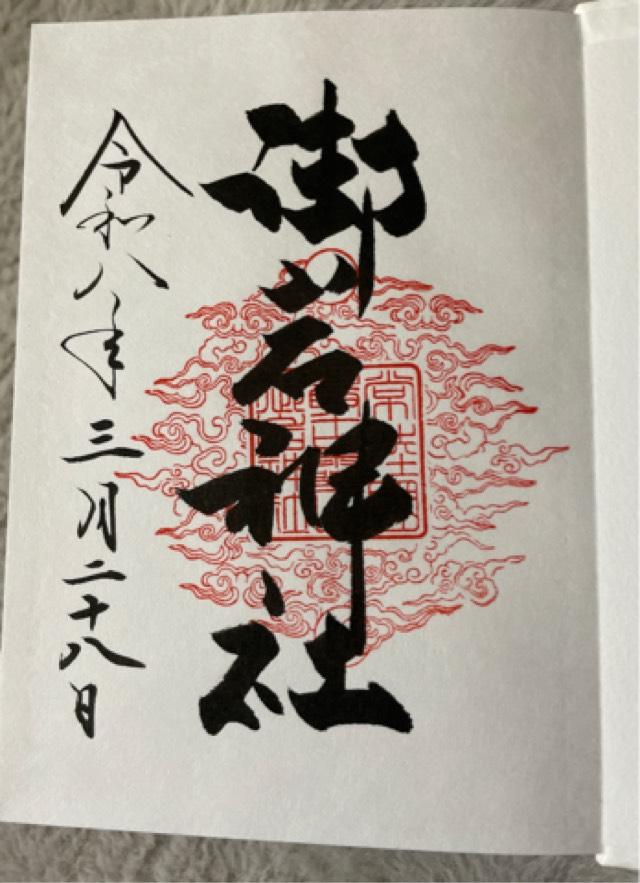 御岩神社
令和八年三月二十八日